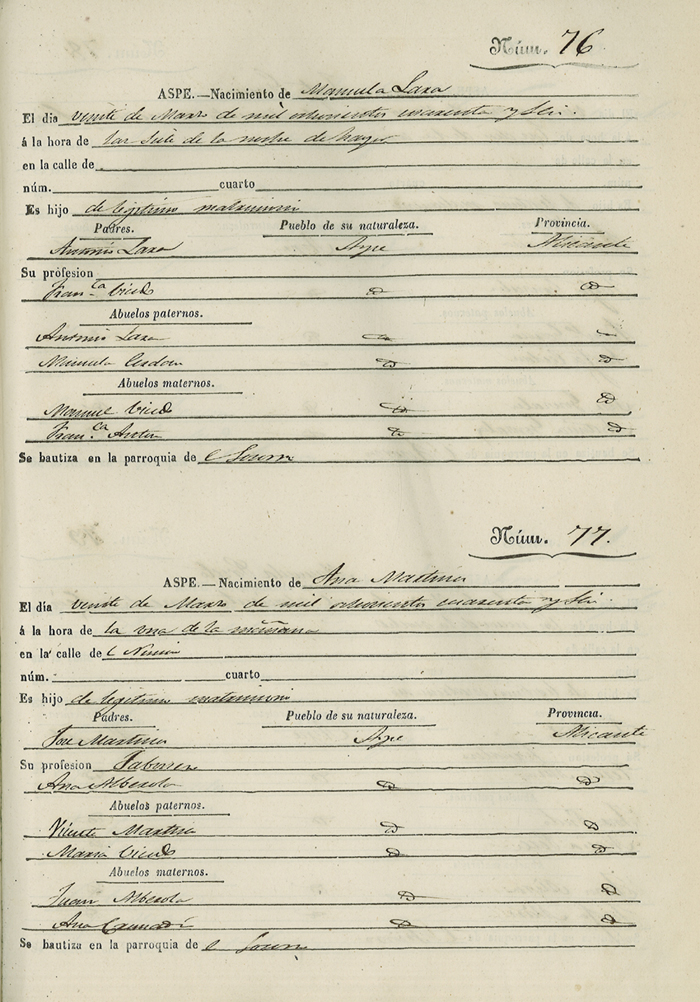 Núm. 76
ASPE.—Nacimiento de Manuela Lara
El dia veinte de Marzo de mil ochocientos cuarenta y seis.
á la hora de las siete de la noche de
en la calle de
núm. cuarto
Es hijo de legitimo matrimoni
Padres. Pueblo de su naturaleza. Provincia.
Antonio Lara Aspe Alicante
Su profesion
Fran.ca
Abuelos paternos.
Antonio Lara
Manuela Cerdan
Abuelos maternos.
Manuel
Fran.ca Anton
Se bautiza en la parroquia de
Núm. 77.
ASPE.—Nacimiento de Ana Martinez
El día veinte de Marzo de mil ochocientos cuarenta y seis.
á la hora de la una de la mañana
en la calle de
núm. cuarto
Es hijo de legitimo matrimoni
Padres. Pueblo de su naturaleza. Provincia.
Jose Martinez Aspe Alicante
Su profesion
Ana Alberola
Abuelos paternos.
Vicente Martinez
Maria
Abuelos maternos.
Juan Alberola
Ana
Se bautiza en la parroquia de